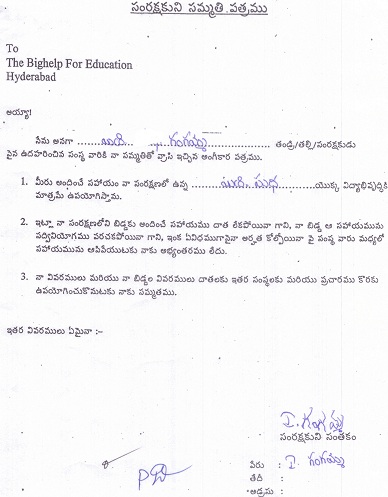 సంరక్షకుని సమ్మతి పత్రము
To
The Bighelp For Education
Hyderabad
అయ్యా!
నేను అనగా .................. గంగమ్మ .................. తండ్రి/తల్లి/సంరక్షకుడు
పైన ఉదహరించిన సంస్థ వారికి నా సమ్మతితో వ్రాసి ఇచ్చిన అంగీకార పత్రము.
1. మీరు అందించే సహాయం నా సంరక్షణలో ఉన్న .................. సుధ ..................యొక్క విద్యాభివృద్ధికి
మాత్రమే ఉపయోగిస్తాను.
2. ఇట్లా నా సంరక్షణలోని బిడ్డకు అందించే సహాయము దాత లేకపోయినా గాని, నా బిడ్డ ఆ సహాయమును
సద్వినియోగము పరచకపోయినా గాని, ఇంక ఏవిధముగానైనా అర్హత కోల్పోయినా పై సంస్థ వారు మధ్యలో
సహాయమును ఆపివేయుటకు నాకు అభ్యంతరము లేదు.
3. నా వివరములు మరియు నా బిడ్డల వివరములు దాతలకు ఇతర సంస్థలకు మరియు ప్రచారము కొరకు
ఉపయోగించుకొనుటకు నాకు సమ్మతము.
ఇతర వివరములు ఏమైనా :-
I. గంగమ్మ
సంరక్షకుని సంతకం
పేరు : I. గంగమ్మ
తేది :
అడ్రసు :